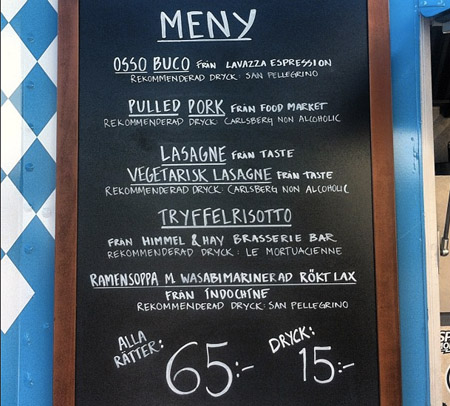 MENY
OSSO BUCO FRÅN LAVAZZA ESPRESSION
REKOMMENDERAD DRYCK: SAN PELLEGRINO
PULLED PORK FRÅN FOOD MARKET
REKOMMENDERAD DRYCK: CARLSBERG NON ALCOHOLIC
LASAGNE FRÅN TASTE
VEGETARISK LASAGNE FRÅN TASTE
REKOMMENDERAD DRYCK: CARLSBERG NON ALCOHOLIC
TRYFFELRISOTTO
FRÅN HIMMEL & HAV BRASSERIE BAR
REKOMMENDERAD DRYCK: LE MORTUACIENNE
RAMENSOPPA M. WASABIMARINERAD RÖKT LAX
FRÅN INDOCHINE
REKOMMENDERAD DRYCK: SAN PELLEGRINO
ALLA RÄTTER: 65:-
DRYCK: 15:-